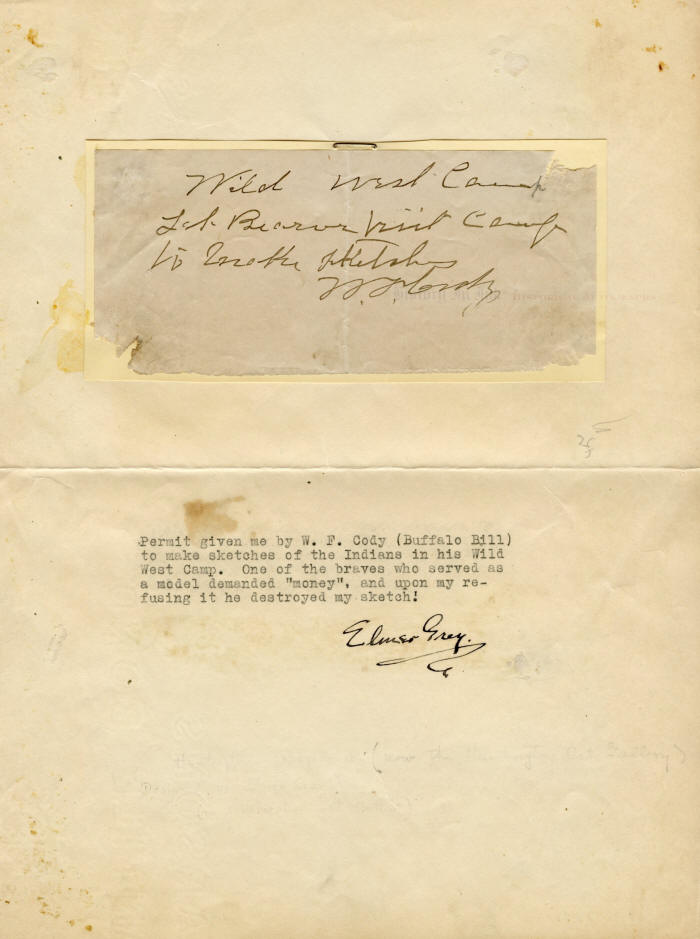 Wild West Camp
Let Bearer Visit Camp
to make sketches
W. F. Cody
25
Permit given me by W. F. Cody (Buffalo Bill)
to make sketches of the Indians in his Wild
West Camp. One of the braves who served as
a model demanded "money", and upon my re-
fusing it he destroyed my sketch!
Elmer Grey.
(now the Huntington Art Gallery)